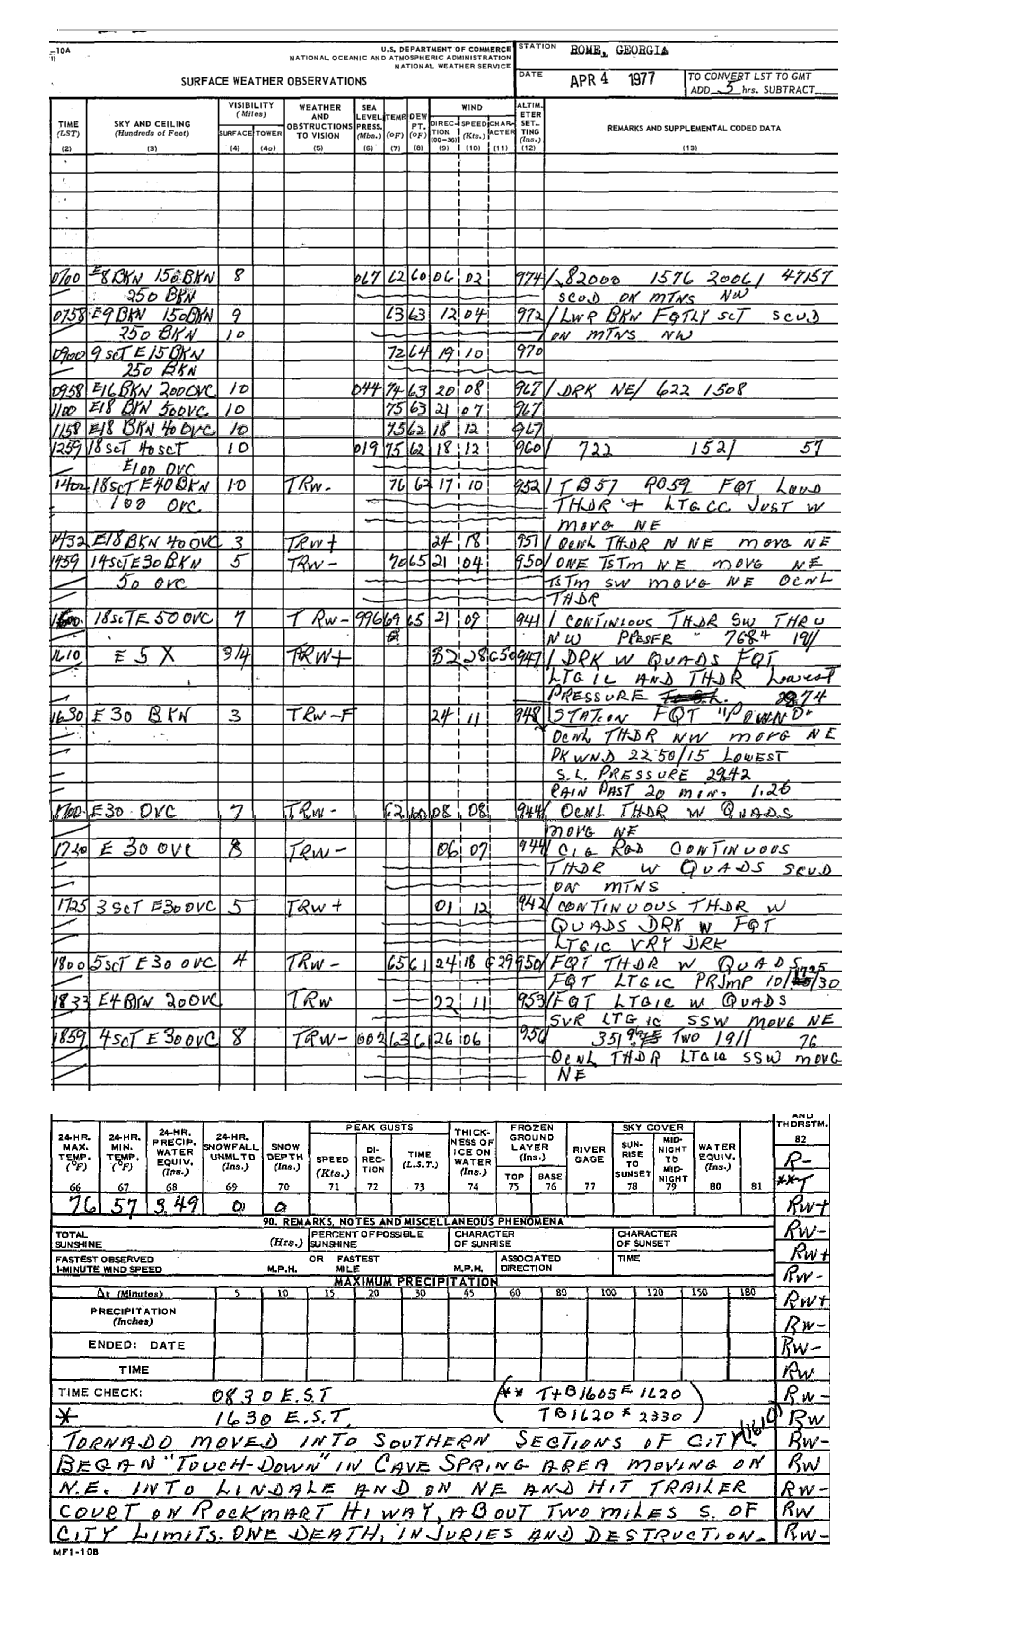 -10A
U.S. DEPARTMENT OF COMMERCE
NATIONAL OCEANIC AND ATMOSPHERIC ADMINISTRATION
NATIONAL WEATHER SERVICE
STATION ROME, GEORGIA
SURFACE WEATHER OBSERVATIONS
DATE APR 4 1977
TO CONVERT LST TO GMT
ADD 5 hrs. SUBTRACT
TIME (LST) (2) SKY AND CEILING (Hundreds of Feet) (3) VISIBILITY (Miles) SURFACE (4) TOWER (4a) WEATHER AND OBSTRUCTIONS TO VISION (5) SEA LEVEL PRESS. (Mbs.) (6) TEMP. (°F) (7) DEW PT. (°F) (8) WIND DIRECTION (00-36) (9) SPEED (Kts.) (10) CHARACTER (11) ALTIMETER SETTING (Ins.) (12) REMARKS AND SUPPLEMENTAL CODED DATA (13)
0700 E8 BKN 150 BKN 8 067 62 60 06 02 974 / 82000 1576 20061 47157
250 BKN SCUD ON MTNS NW
0758 E9 BKN 150 BKN 9 63 63 12 04 972 / LWR BKN FQTLY SCT SCUD
250 BKN 10 ON MTNS NW
0900 9 SCT E15 BKN 72 64 19 10 970
250 BKN
0958 E16 BKN 200 OVC 10 044 74 63 20 08 967 / DRK NE/ 622 1508
1100 E18 BKN 50 OVC 10 75 63 21 07 967
1158 E18 BKN 40 OVC 10 75 62 18 12 967
1259 18 SCT 40 SCT 10 019 75 62 18 12 960 / 722 1521 57
E100 OVC
1402 18 SCT E40 BKN 10 TRW- 76 62 17 10 952 / TB57 R059 FQT LOUD
100 OVC THDR + LTGCC JUST W
MOVG NE
1432 E18 BKN 40 OVC 3 TRW+ 24 18 951 / OCNL THDR N NE MOVG NE
1459 14 SCT E30 BKN 5 TRW- 70 65 21 04 950 / ONE TSTM NE MOVG NE
50 OVC TSTM SW MOVG NE OCNL
THDR
18 SCT E 50 OVC 7 TRW- 996 69 65 21 09 941 / CONTINIOUS THDR SW THRU
NW PRESFR 768+ 1911
1610 E 5 X 3/4 TRW+ 32 28 G50 947 / DRK W QUADS FQT
LTG IC AND THDR LOWEST
PRESSURE 28.74
1630 E 30 BKN 3 TRW-F 24 11 948 STATION FQT
OCNL THDR NW MOVG NE
PK WND 22 50/15 LOWEST
S.L. PRESSURE 29.42
RAIN PAST 20 MIN. 1.26
1700 E30 OVC 7 TRW- 62 60 08 08 944 / OCNL THDR W QUADS
MOVG NE
1720 E 30 OVC 8 TRW- 06 07 944 / CIG RGD CONTINUOUS
THDR W QUADS SCUD
ON MTNS
1725 3 SCT E30 OVC 5 TRW+ 01 12 942 / CONTINUOUS THDR W
QUADS DRK W FQT
LTGIC VRY DRK
1800 5 SCT E 30 OVC 4 TRW- 65 61 24 18 G29 950 / FQT THDR W QUADS
FQT LTGIC PRJMP 10/1725/30
1833 E4 BKN 20 OVC TRW 22 11 953 / FQT LTGIC W QUADS
SVR LTG IC SSW MOVG NE
1859 4 SCT E 30 OVC 8 TRW- 002 63 61 26 06 950 TWO 1911 76
OCNL THDR LTGIC SSW MOVG
NE
24-HR. MAX. TEMP. (°F) 66 24-HR. MIN. TEMP. (°F) 67 24-HR. PRECIP. WATER EQUIV. (Ins.) 68 24-HR. SNOWFALL UNMLTD (Ins.) 69 SNOW DEPTH (Ins.) 70 PEAK GUSTS SPEED (Kts.) 71 DIRECTION 72 TIME (L.S.T.) 73 THICKNESS OF ICE ON WATER (Ins.) 74 FROZEN GROUND LAYER (Ins.) TOP 75 BASE 76 RIVER GAGE 77 SKY COVER SUNRISE TO SUNSET 78 MIDNIGHT TO MIDNIGHT 79 WATER EQUIV. (Ins.) 80 81 AND THDRSTM. 82
R-
**T
76 57 3.49 0 0 RW+
90. REMARKS, NOTES AND MISCELLANEOUS PHENOMENA
TOTAL SUNSHINE (Hrs.) PERCENT OF POSSIBLE SUNSHINE CHARACTER OF SUNRISE CHARACTER OF SUNSET RW-
FASTEST OBSERVED 1-MINUTE WIND SPEED M.P.H. OR FASTEST MILE M.P.H. ASSOCIATED DIRECTION TIME RW+
MAXIMUM PRECIPITATION RW-
Δt (Minutes) 5 10 15 20 30 45 60 80 100 120 150 180
PRECIPITATION (Inches) RW+
RW-
ENDED: DATE RW-
TIME RW
TIME CHECK: 0830 E.S.T (** T+B1605E 1620 RW-
* 1630 E.S.T. TB1620 E 2330) RW
TORNADO MOVED INTO SOUTHERN SECTIONS OF CITY (1610) RW-
BEGAN "TOUCH-DOWN" IN CAVE SPRING AREA MOVING ON RW
N.E. INTO LINDALE AND ON NE AND HIT TRAILER RW-
COURT ON ROCKMART HIWAY, ABOUT TWO MILES S. OF RW
CITY LIMITS. ONE DEATH, INJURIES AND DESTRUCTION. RW-
MF1-10B